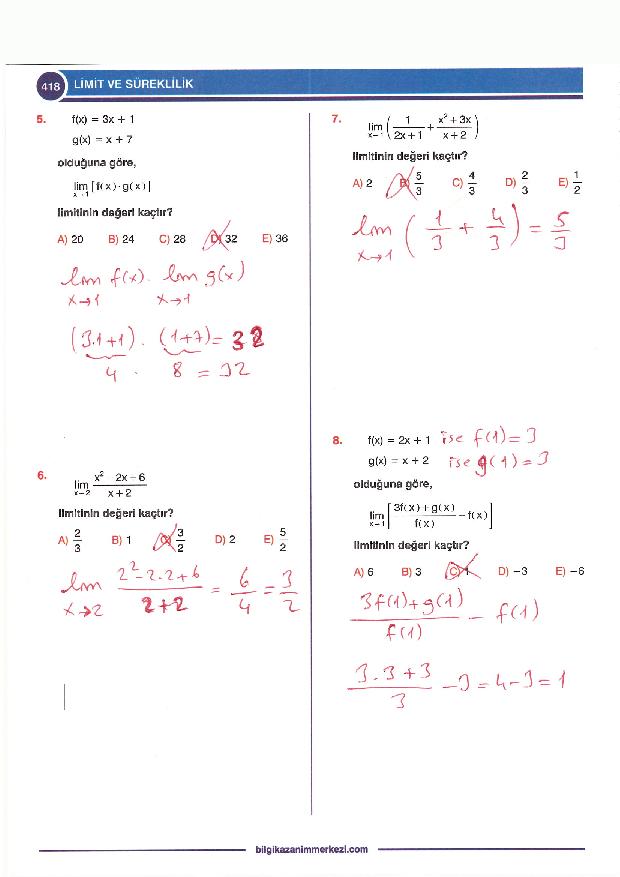 418 LİMİT VE SÜREKLİLİK
5. f(x) = 3x + 1
g(x) = x + 7
olduğuna göre,
lim x→1 [f(x)·g(x)]
limitinin değeri kaçtır?
A) 20 B) 24 C) 28 D) 32 E) 36
lim x→1 f(x). lim x→1 g(x)
(3.1+1) . (1+7) = 32
4 . 8 = 32
6. lim x→2 (x² – 2x + 6)/(x + 2)
limitinin değeri kaçtır?
A) 2/3 B) 1 C) 3/2 D) 2 E) 5/2
lim x→2 (2²-2.2+6)/(2+2) = 6/4 = 3/2
7. lim x→1 (1/(2x+1) + (x²+3x)/(x+2))
limitinin değeri kaçtır?
A) 2 B) 5/3 C) 4/3 D) 2/3 E) 1/2
lim x→1 (1/3 + 4/3) = 5/3
8. f(x) = 2x + 1 ise f(1) = 3
g(x) = x + 2 ise g(1) = 3
olduğuna göre,
lim x→1 [(3f(x)+g(x))/f(x) – f(x)]
limitinin değeri kaçtır?
A) 6 B) 3 C) 1 D) –3 E) –6
(3f(1)+g(1))/f(1) - f(1)
(3.3+3)/3 - 3 = 4-3 = 1
bilgikazanimmerkezi.com